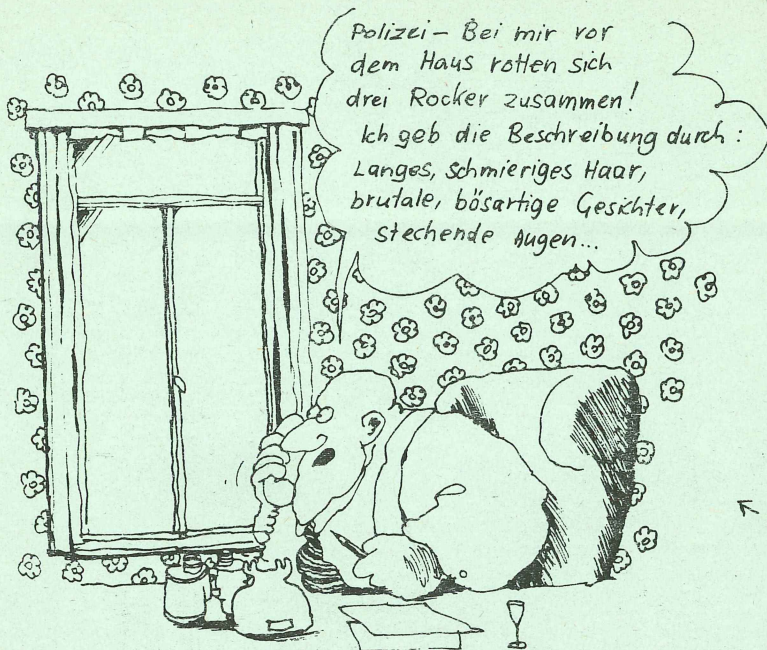 Polizei – Bei mir vor
dem Haus rotten sich
drei Rocker zusammen!
Ich geb die Beschreibung durch:
Langes, schmieriges Haar,
brutale, bösartige Gesichter,
stechende Augen...